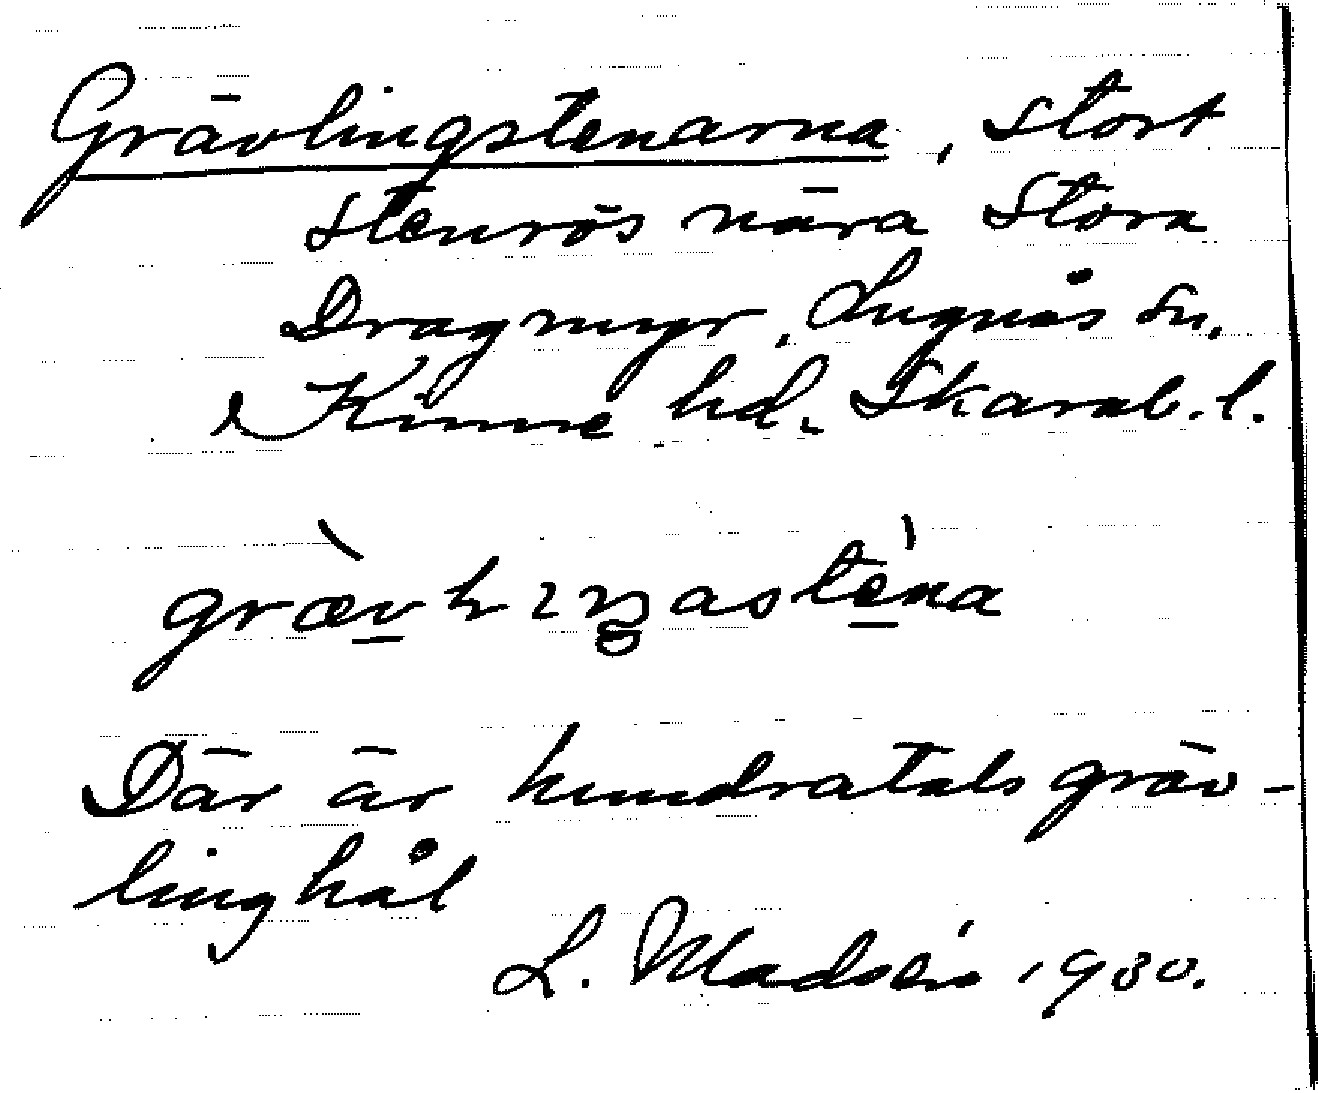 Grävlingstenarna, stort
stenrös nära Stora
Dragmyr, Lugnås sn,
Kinne hd. Skarab. l.
Där är hundratals gräv-
linghål
L. Madsén 1930.